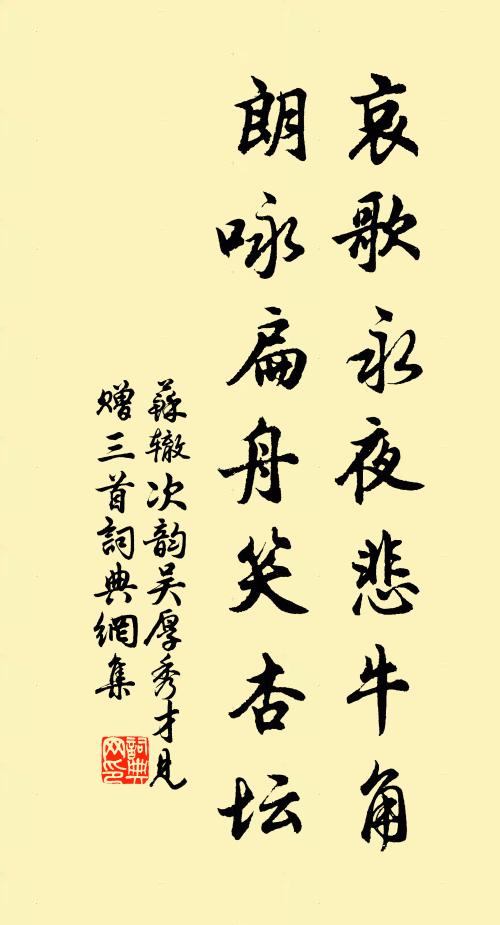 哀歌永夜悲牛角
朗咏扁舟笑杏坛
蘇辙次韵吴厚秀才見
赠三首詞典網集
詞典
网印